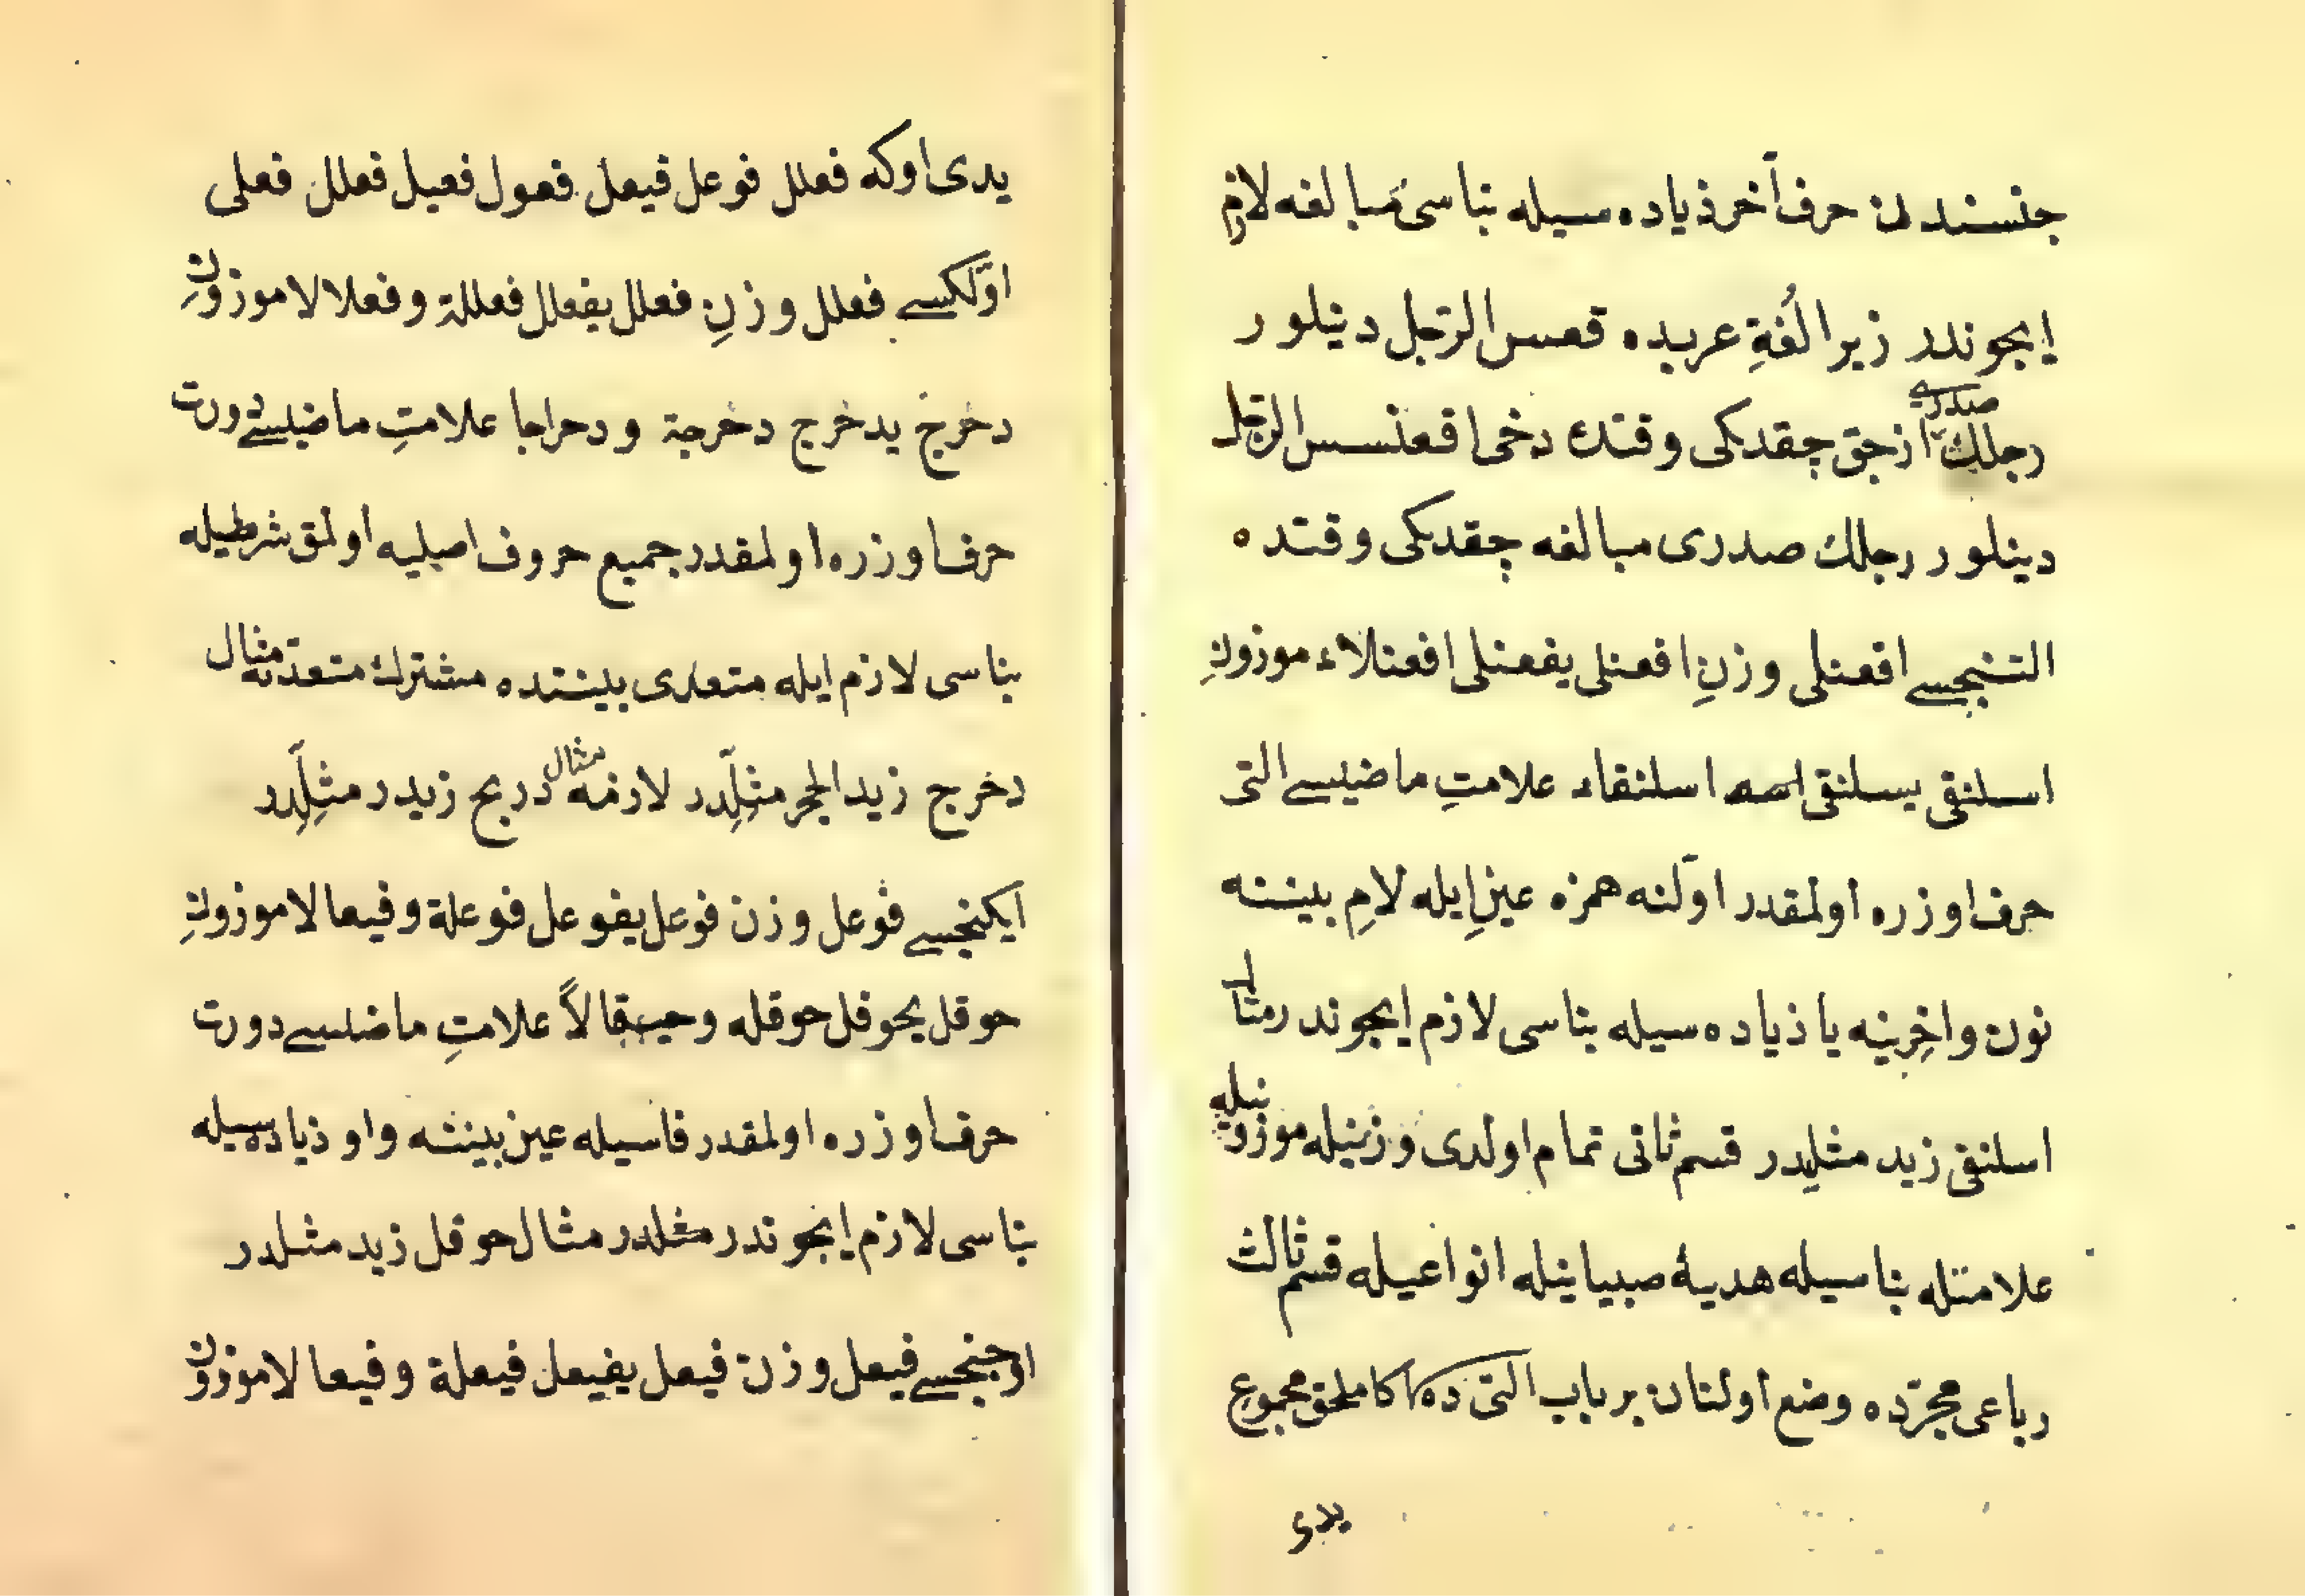 جنسندن حرف آخر ذیاده سیله بناسی مبالغه لازم
ایچوندر زیرا لُغةِ عربده قعس الرّجل دینلور
رجلك صدری ازجق چقدیکی وقتده دخی اقعنسس الرّجل
دینلور رجلك صدری مبالغه چقدیکی وقتده
التنجیسی افعنلی وزنِ افعنلی یفعنلی افعنلاء موزونِ
اسلنقی یسلنقی اسلنقاء علامتِ ماضیسی التی
حرف اوزره اولمقدر اوّلنه همزه عینِ ایله لامِ بیننه
نون واخِرینه یا ذیاده سیله بناسی لازم ایچوندر مثال
اسلنقی زید مثلیدر قسم ثانی تمام اولدی وزنیله موزونیله
علامتله بناسیله هدیۀ صبیانیله انواعیله قسم ثالث
رباعی مجرّده وضع اولنان بر باب التی ده اکا ملحق مجموع
یدی
یدی اوکه فعلل فوعل فیعل فعول فعیل فعلل فعلی
اوّلکسی فعلل وزنِ فعلل یفعلل فعللة وفعلالا موزونِ
دخرج یدخرج دخرجة ودحراجا علامتِ ماضیسی دورت
حرف اوزره اولمقدر جمیع حروف اصلیه اولمق شرطیله
بناسی لازم ایله متعدی بیننده مشترك متعدیه مثال
دخرج زید الحجر مثلِدر لازمه مثال دربح زیدر مثلِدر
ایکنجیسی فوعل وزن فوعل یفوعل فوعلة وفیعالا موزونِ
حوقل یحوقل حوقله وحیقالاً علامتِ ماضیسی دورت
حرف اوزره اولمقدر فاسیله عین بیننه واو ذیاده سیله
بناسی لازم ایچوندر مثلدر مثال حوقل زید مثلدر
اوجنجیسی فیعل وزن فیعل یفیعل فیعلة وفیعالا موزون